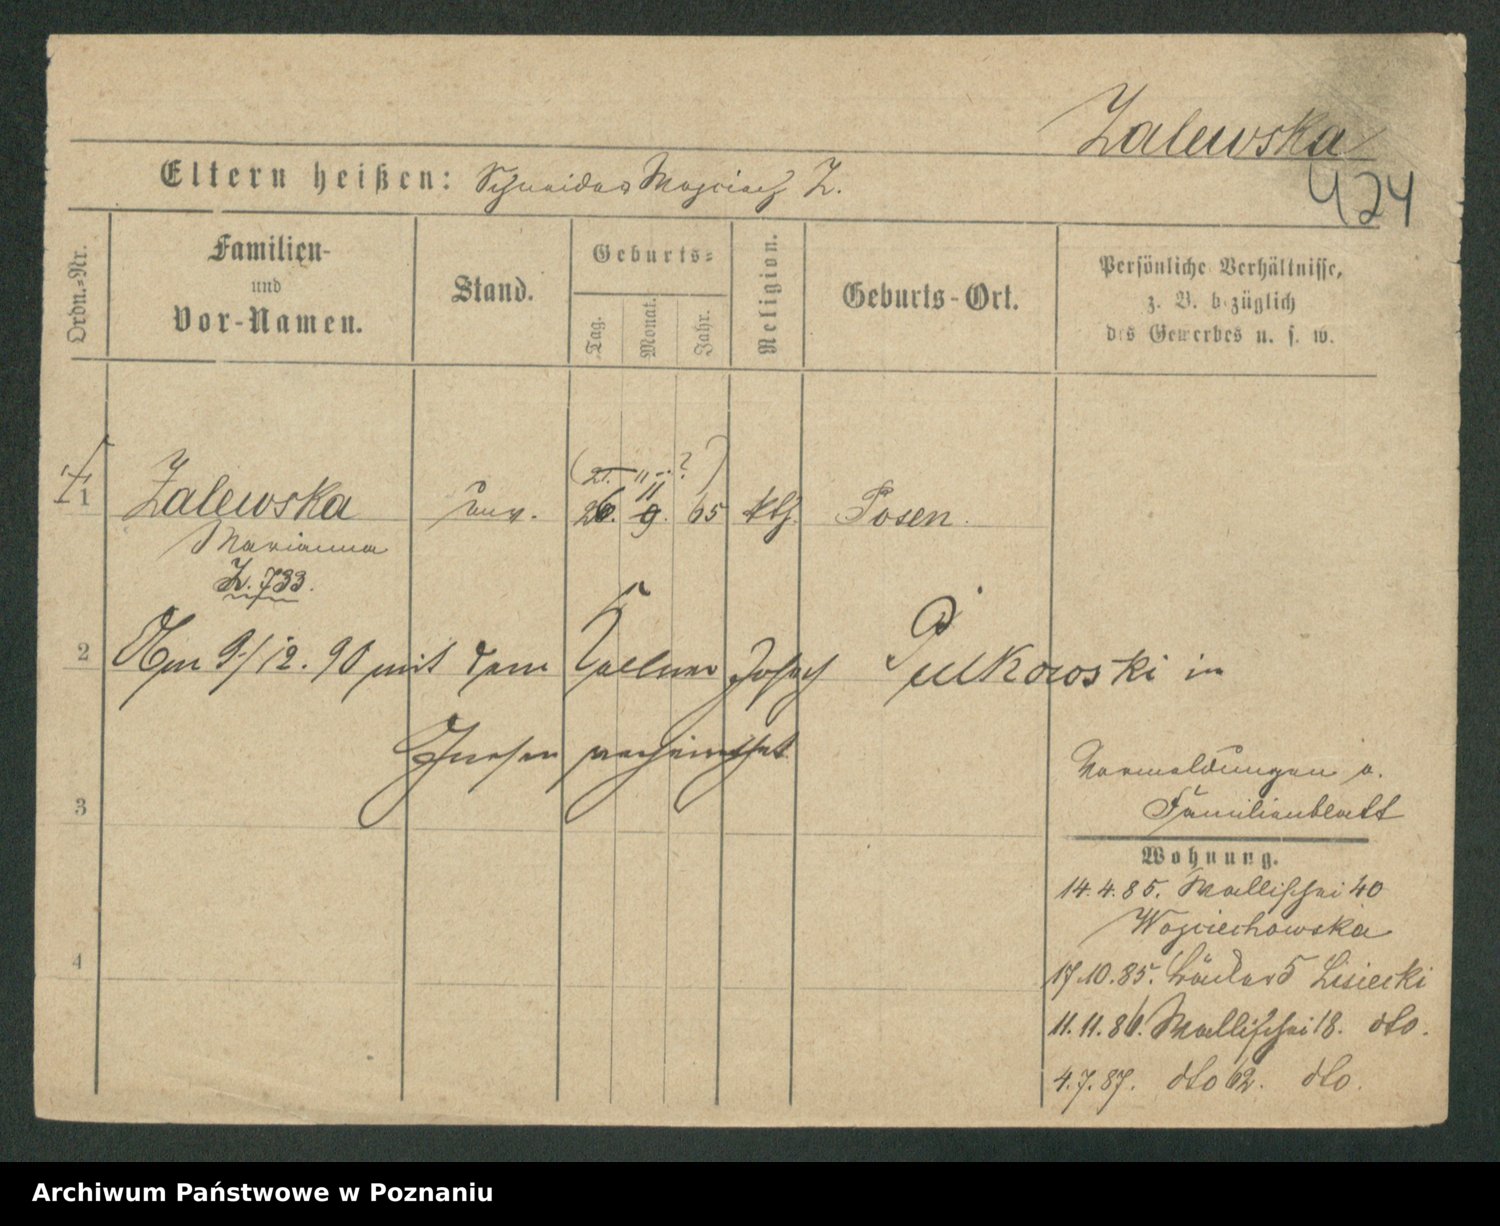 Zalewska
424
Eltern heißen: Schneider Wojciech Z.
Ordn.-Nr.
Familien-
und
Vor-Namen.
Stand.
Geburts-
Tag.
Monat.
Jahr.
Religion.
Geburts-Ort.
Persönliche Verhältnisse,
z. B. bezüglich
des Gewerbes u. s. w.
(21. 11 ... ?)
11
1 Zalewska unv. 26. 9. 65 kth. Posen.
Marianna
Z. 733.
2 Am 9/12.90 mit dem Kellner Josef Pulkowski in
Gnesen verheirathet
3
4
Vormeldungen s.
Familienblatt
Wohnung.
14.4.85. Wallischei 40
Wojciechowska
17.10.85. 5 Lisiecki
11.11.86. Wallischei 18. dto.
4.7.87. dto 62. dto.